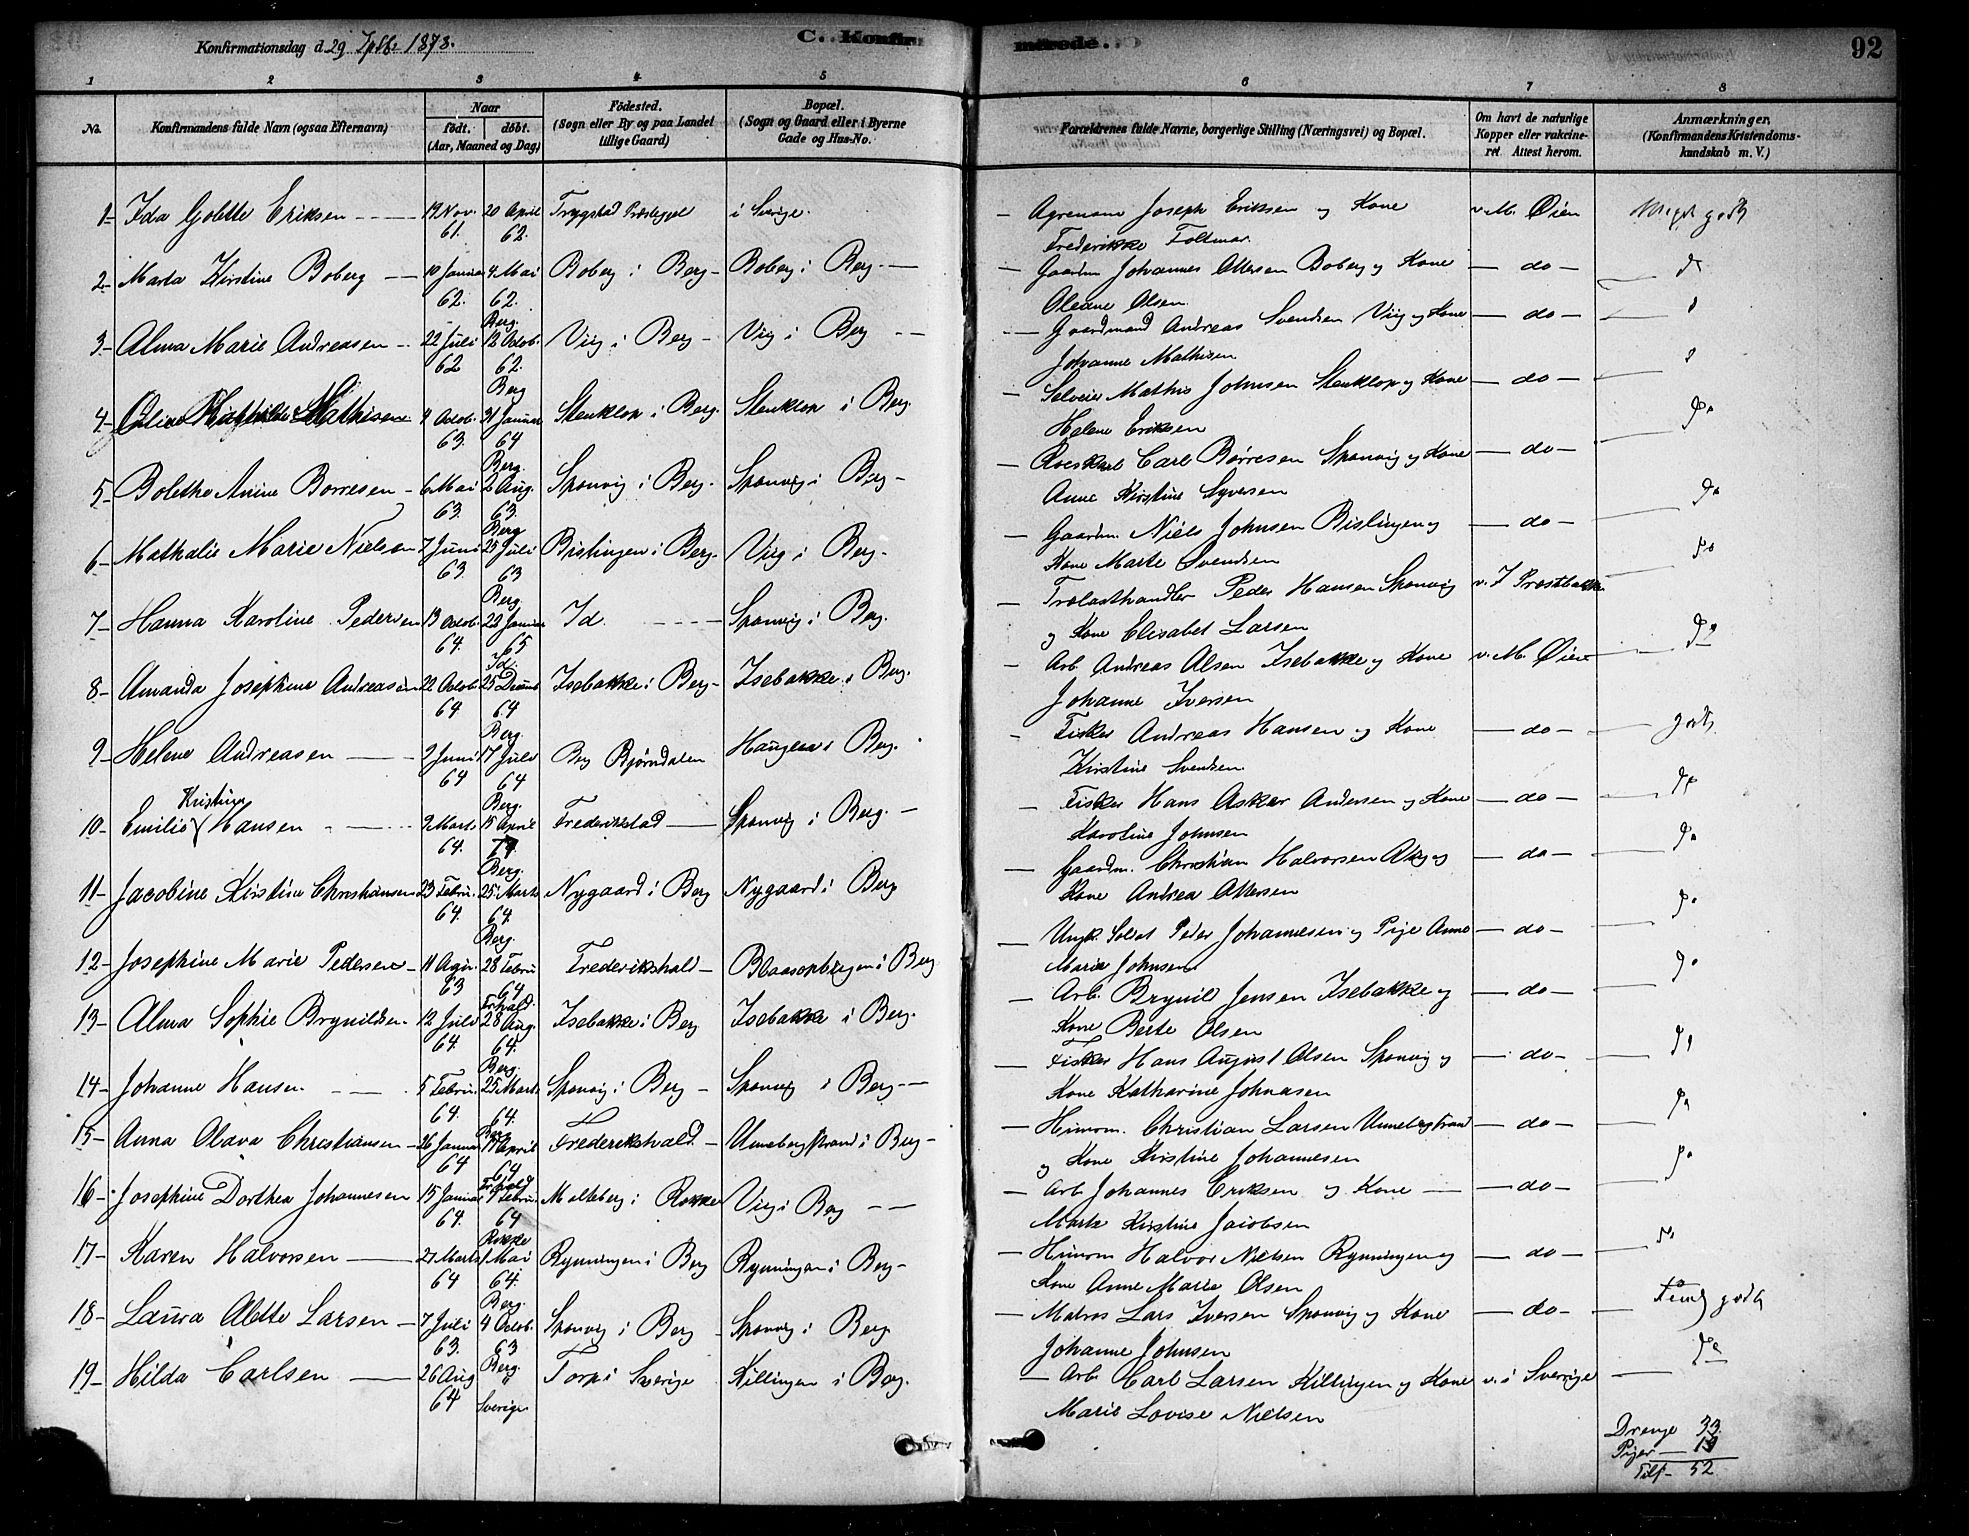 Konfirmationsdag d. 29 Sptb. 1878.
C. Konfirmerede.
92
1 2 3 4 5 6 7 8
No.
Konfirmandens fulde Navn (ogsaa Efternavn)
Naar
födt. döbt.
(Aar, Maaned og Dag)
Födested.
(Sogn eller By og paa Landet
tillige Gaard)
Bopæl.
(Sogn og Gaard eller i Byerne
Gade og Hus-No.
Forældrenes fulde Navne, borgerlige Stilling (Næringsvei) og Bopæl.
Om havt de naturlige
Kopper eller vakcine-
ret. Attest herom.
Anmærkninger,
(Konfirmandens Kristendoms-
kundskab m. V.)
1- Ida Golette Eriksen 19 Nov. 61. 20 April 62. Trygstad Præstegjel i Sverige. Agronom Joseph Eriksen og Kone v. M. Øien Meget godt
Frederikke Foltmar
2- Marta Kirstine Boberg 10 Januar 62. 4 Mai 62. Berg. Boberg i Berg Boberg i Berg Gaardm Johannes Ottersen Boberg og Kone do do
Oleane Olsen
3- Alma Marie Andreasen 22 Juli 62 12 Octob. 62. Berg Viig i Berg Viig i Berg Gaardmand Andreas Svendsen Viig og Kone do
Johanne Mathisen
4- Oline Mathilde Mathisen 4 Octob. 63. 31 Januar 64 Berg. Stenklop i Berg. Stenklop i Berg. Selveier Mathis Johnsen Stenklop og Kone do do
Helene Eriksen
5- Bolethe Anine Borresen 6 Mai 63. 2 Aug. 63. Berg Sponvig i Berg. Sponvig i Berg Carl Börresen Sponvig og Kone do do
Anne Kirstine Syversen
6- Mathalie Marie Nielsen 7 Juni 63. 25 Juli 63 Berg. Bislingen i Berg. Viig i Berg. Gaardm. Niels Johnsen Bislingen og do do
Kone Marte Svendsen
7- Hanna Karoline Pedersen 13 Octob. 64. 22 Januar 65 Id. Id. Sponvig i Berg. Trælasthandler Peder Hansen Sponvig v. J Præstbakke do
og Kone Elisabet Larsen
8- Amanda Josephine Andreasen 22 Octob. 64 25 Decmb 64 Berg. Isebakke i Berg Isebakke i Berg. Arb. Andreas Olsen Isebakke og Kone v. M. Øien
Johanne Iversen
9- Helene Andreasen 9 Juni 64 17 Juli 64 Berg. Berg Bjørndalen Haugen i Berg. Fisker Andreas Hansen og Kone do godt
Kirstine Svendsen
10- Emilie Kristine Hansen 9 Marts 64. 15 April Berg. Frederikstad Sponvig i Berg. Fisker Hans Asker Andersen og Kone do do
Karoline Johnsen
11- Jacobine Kirstine Christiansen 23 Febru. 64. 25 Marts 64. Berg. Nygaard i Berg Nygaard i Berg Gaardm. Christian Halvorsen og do do
Kone Andrea Ottersen
12- Josephine Marie Pedersen 63 28 Febru 64 Frhald. Frederikshald i Berg Ungk. Soldat Peder Johannesen og Pige Anne do do
Marie Johnsen
13- Alma Sophie Brynildsen 12 Juli 64. 28 Aug. 64. Berg. Isebakke i Berg Isebakke i Berg. Arb. Brynil Jensen Isebakke og do do
Kone Berte Olsen
14- Johanne Hansen 5 Febru. 64. 25 Marts 64. Berg Sponvig i Berg Sponvig i Berg Fisker Hans August Olsen Sponvig og do do
Kone Katharine Johnasen
15- Anna Olava Christiansen 26 Januar 64 April 64 Frhald Frederikshald Unnebergstrand i Berg Christian Larsen Unnebergstrand do do
og Kone Kirstine Johannesen
16- Josephine Dorthea Johannesen 15 Januar 64. Febru. 64 Rokke Molteberg i Rokke Viig i Berg Arb Johannes Eriksen og Kone do do
Marte Kirstine Jacobsen
17- Karen Halvorsen 27 Marts 64 1 Mai 64. Berg. Rynningen i Berg Rynningen i Berg Halvor Nielsen Rynningen og do
Kone Anne Marie Olsen
18- Laura Alette Larsen 7 Juli 63. 4 Octob. 63 Berg Sponvig i Berg Sponvig i Berg. Matros Lars Iversen Sponvig og Kone do godt
Johanne Johnsen
19- Hilda Carlsen 26 Aug 64 " Sverige Torp i Sverige Killingen i Berg. Arb. Carl Larsen Killingen og Kone v. i Sverige do
Marie Lovise Nielsen
Drenge 33.
Piger 19
Tils. 52